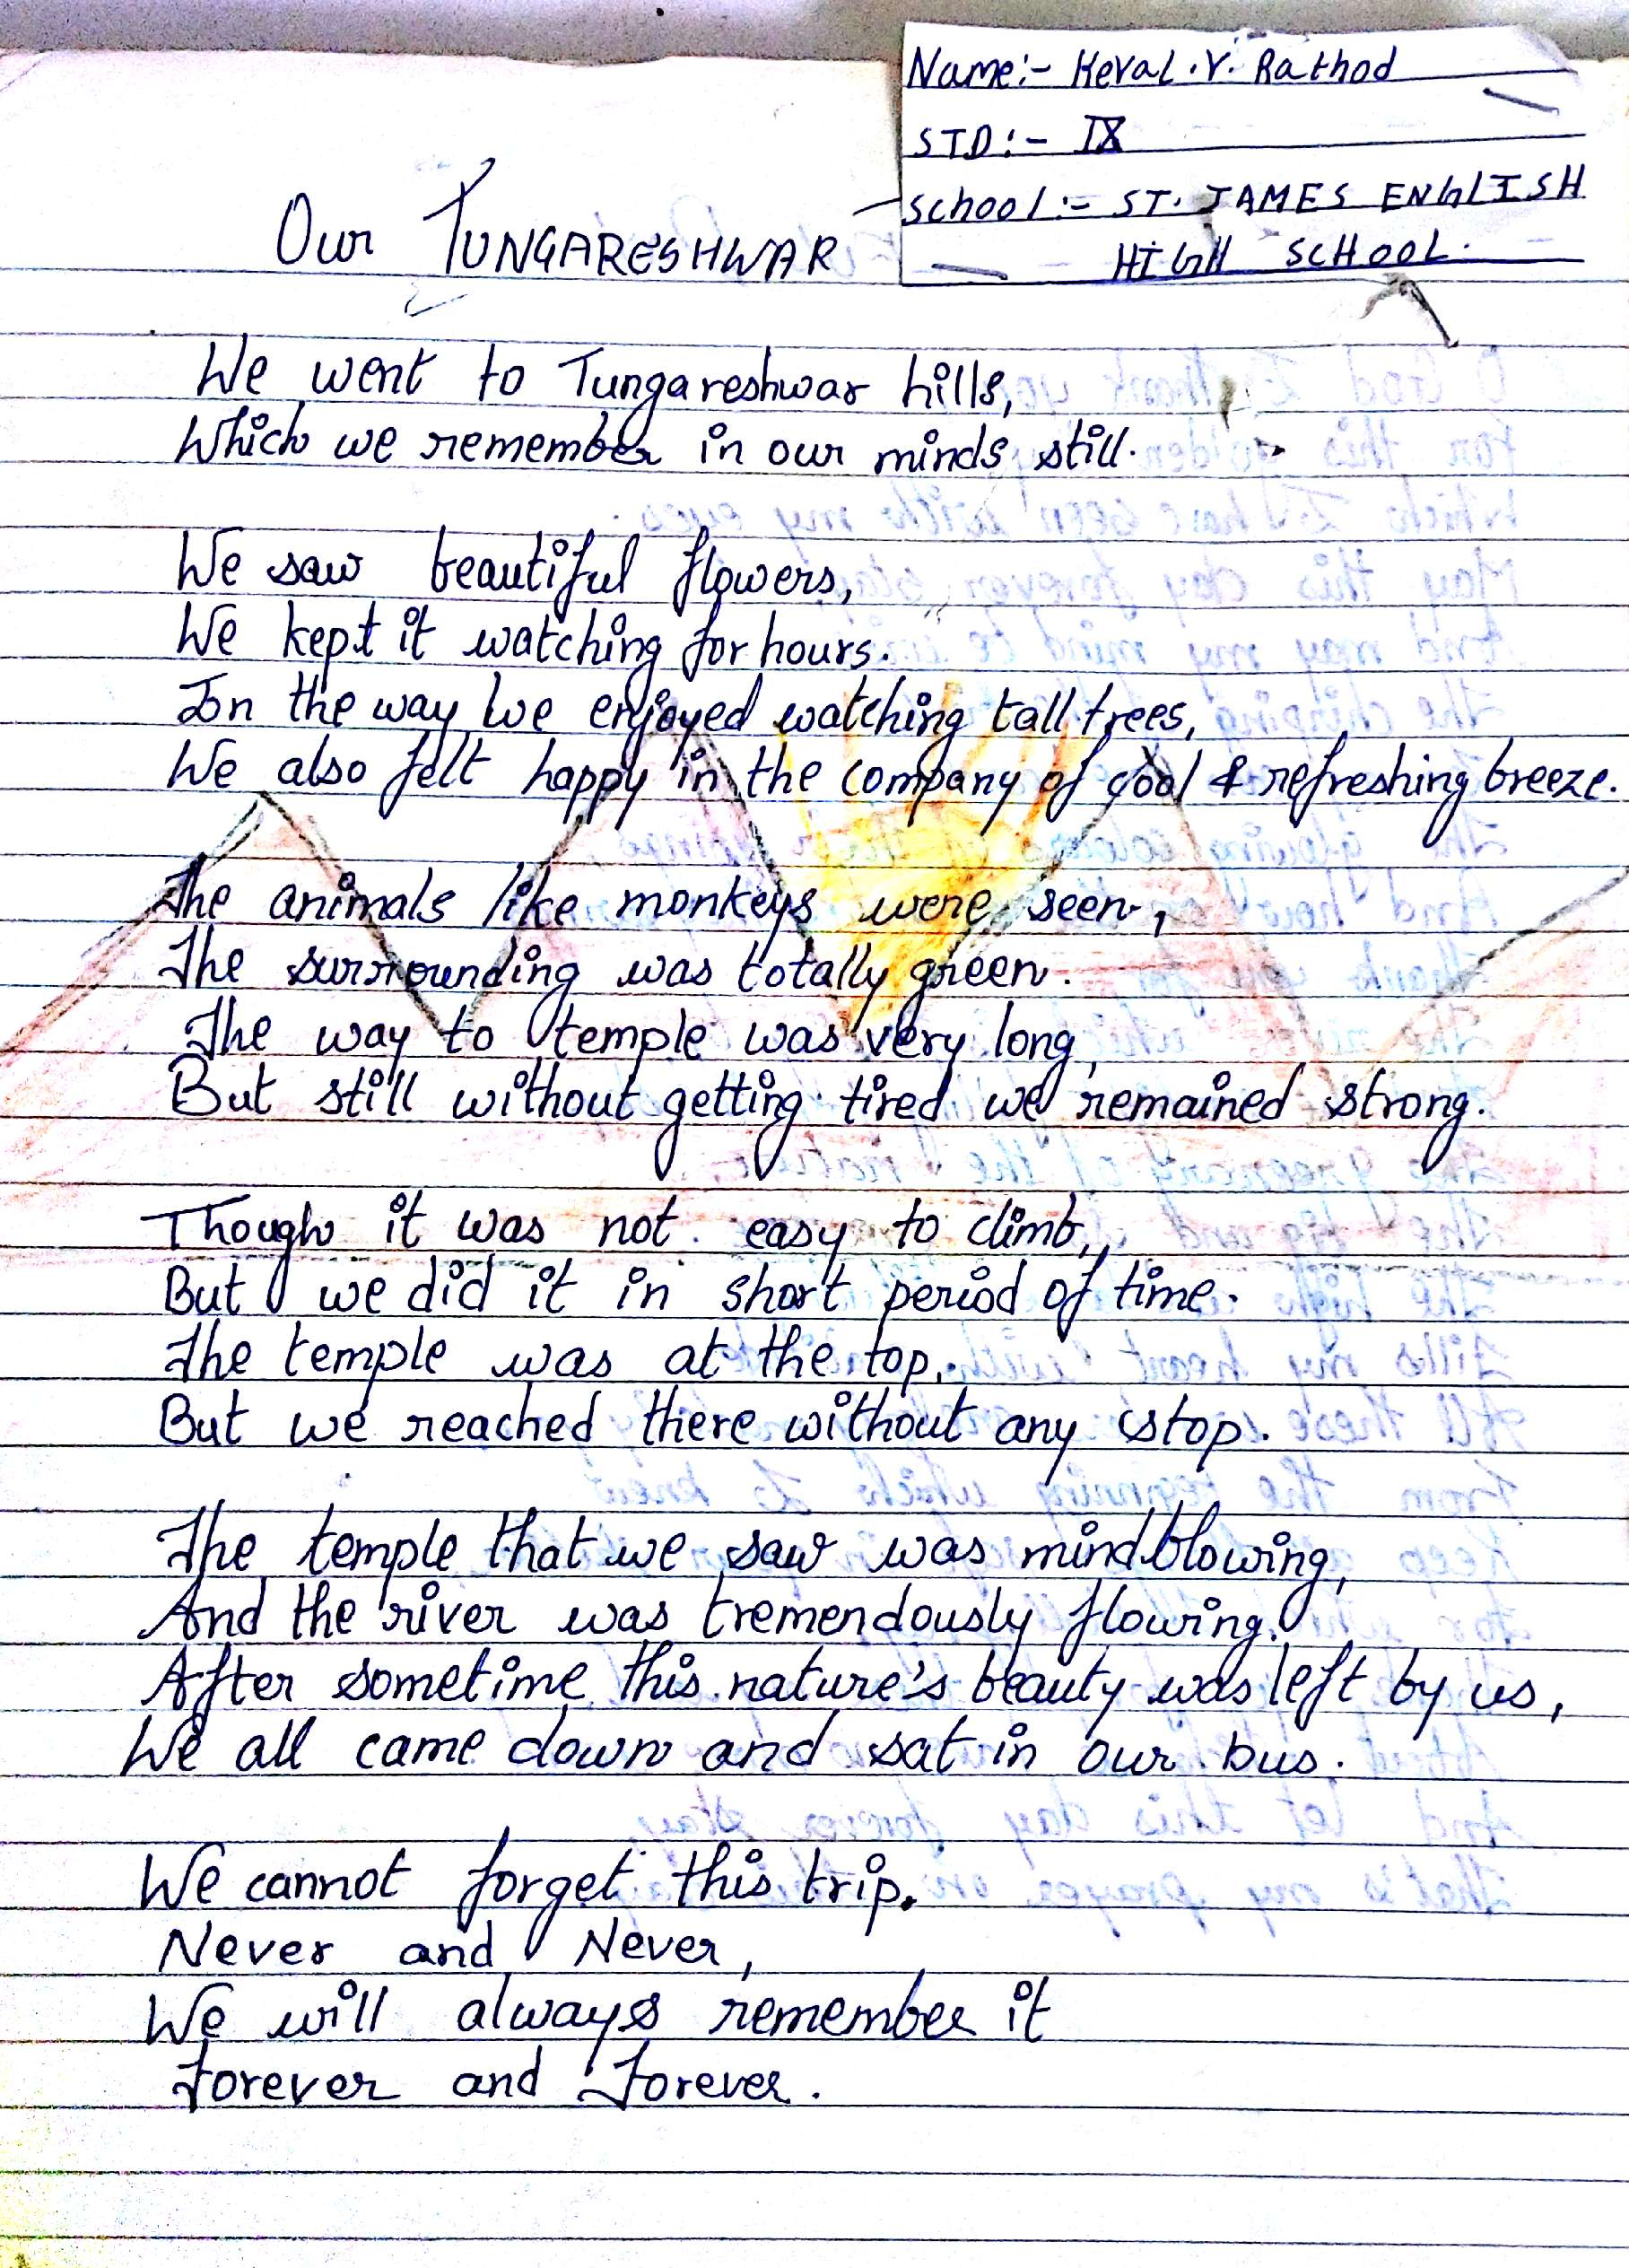 Name:- Keval .V. Rathod
STD:- IX
School:- ST. JAMES ENGLISH
HIGH SCHOOL.
Our TUNGARESHWAR
We went to Tungareshwar hills,
Which we remember in our minds still.
We saw beautiful flowers,
We kept it watching for hours.
In the way we enjoyed watching tall trees,
We also felt happy in the company of cool & refreshing breeze.
The animals like monkeys were seen,
The surrounding was totally green.
The way to temple was very long,
But still without getting tired we remained strong.
Though it was not easy to climb,
But we did it in short period of time.
The temple was at the top,
But we reached there without any stop.
The temple that we saw was mindblowing,
And the river was tremendously flowing.
After sometime this nature's beauty was left by us,
We all came down and sat in our bus.
We cannot forget this trip.
Never and Never,
We will always remember it
Forever and Forever.